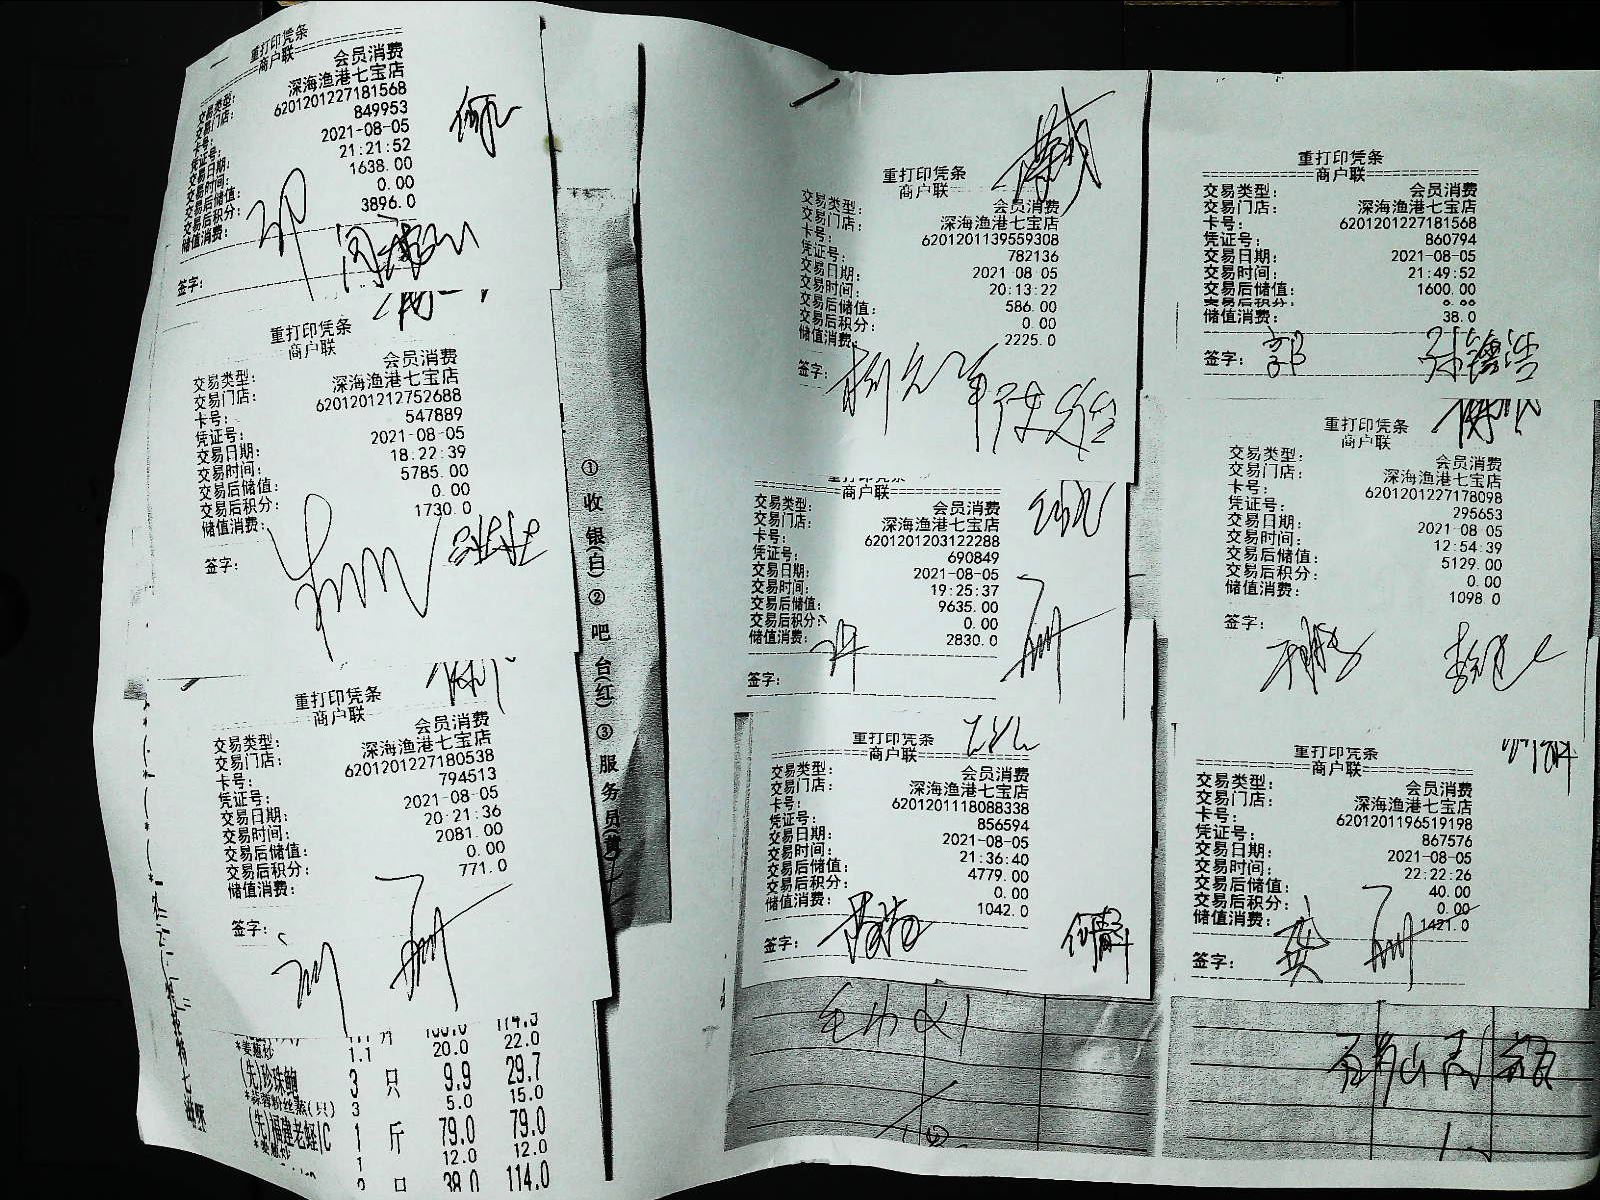 重打印凭条
商户联
交易类型： 会员消费
交易门店： 深海渔港七宝店
卡号： 6201201227181568
凭证号： 849953
交易日期： 2021-08-05
交易时间： 21:21:52
交易后储值： 1638.00
交易后积分： 0.00
储值消费： 3896.0
签字：
重打印凭条
商户联
交易类型： 会员消费
交易门店： 深海渔港七宝店
卡号： 6201201212752688
凭证号： 547889
交易日期： 2021-08-05
交易时间： 18:22:39
交易后储值： 5785.00
交易后积分： 0.00
储值消费： 1730.0
签字：
重打印凭条
商户联
交易类型： 会员消费
交易门店： 深海渔港七宝店
卡号： 6201201227180538
凭证号： 794513
交易日期： 2021-08-05
交易时间： 20:21:36
交易后储值： 2081.00
交易后积分： 0.00
储值消费： 771.0
签字：
1.1 20.0 22.0
(先)珍珠鲍 3 只 9.9 29.7
*蒜蓉粉丝蒸(只) 3 5.0 15.0
(先)福建老蛏/C 1 斤 79.0 79.0
*姜葱炒 1 12.0 12.0
38.0 114.0
①收银(白)②吧台(红)③服务员(黄)
重打印凭条
商户联
交易类型： 会员消费
交易门店： 深海渔港七宝店
卡号： 6201201139559308
凭证号： 782136
交易日期： 2021-08-05
交易时间： 20:13:22
交易后储值： 586.00
交易后积分： 0.00
储值消费： 2225.0
签字：
商户联
交易类型： 会员消费
交易门店： 深海渔港七宝店
卡号： 6201201203122288
凭证号： 690849
交易日期： 2021-08-05
交易时间： 19:25:37
交易后储值： 9635.00
交易后积分： 0.00
储值消费： 2830.0
签字： 许
重打印凭条
商户联
交易类型： 会员消费
交易门店： 深海渔港七宝店
卡号： 6201201118088338
凭证号： 856594
交易日期： 2021-08-05
交易时间： 21:36:40
交易后储值： 4779.00
交易后积分： 0.00
储值消费： 1042.0
签字：
重打印凭条
商户联
交易类型： 会员消费
交易门店： 深海渔港七宝店
卡号： 6201201227181568
凭证号： 860794
交易日期： 2021-08-05
交易时间： 21:49:52
交易后储值： 1600.00
交易后积分： 0.00
储值消费： 38.0
签字： 郭
重打印凭条
商户联
交易类型： 会员消费
交易门店： 深海渔港七宝店
卡号： 6201201227178098
凭证号： 295653
交易日期： 2021-08-05
交易时间： 12:54:39
交易后储值： 5129.00
交易后积分： 0.00
储值消费： 1098.0
签字：
重打印凭条
商户联
交易类型： 会员消费
交易门店： 深海渔港七宝店
卡号： 6201201196519198
凭证号： 867576
交易日期： 2021-08-05
交易时间： 22:22:26
交易后储值： 40.00
交易后积分： 0.00
储值消费： 1421.0
签字： 龚